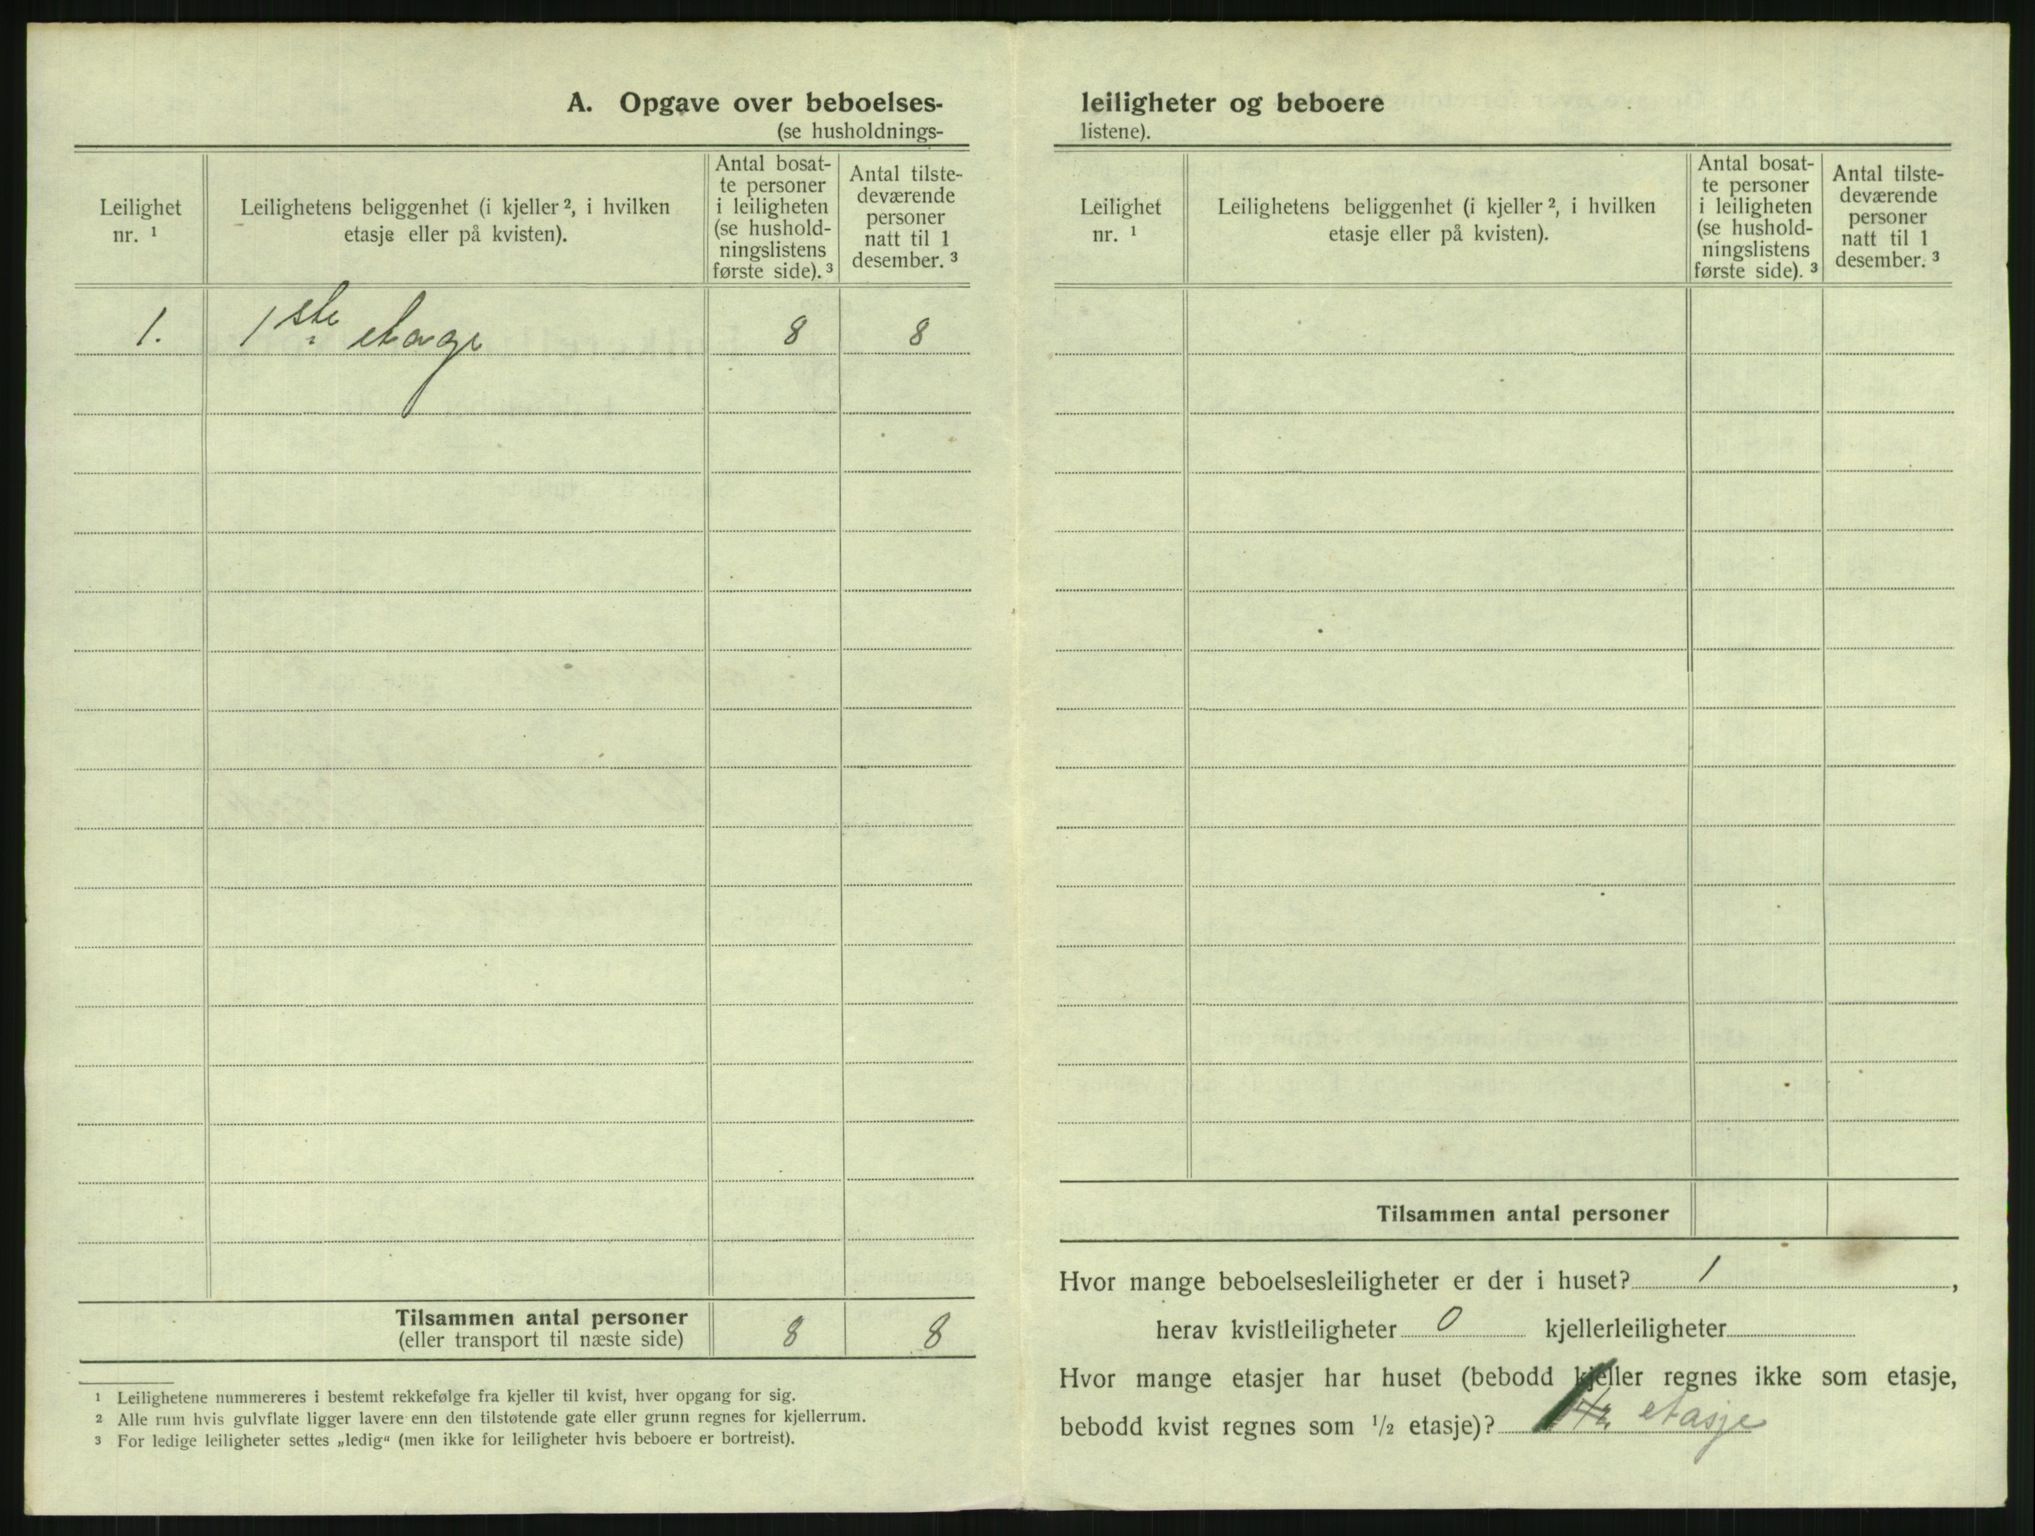 A. Opgave over beboelses-
(se husholdnings-
Leilighet nr. 1
Leilighetens beliggenhet (i kjeller 2, i hvilken etasje eller på kvisten).
Antal bosat-
te personer
i leiligheten
(se hushold-
ningslistens
første side). 3
Antal tilste-
deværende
personer
natt til 1
desember. 3
1. 1ste etage 8 8
Tilsammen antal personer 8 8
(eller transport til næste side)
1 Leilighetene nummereres i bestemt rekkefølge fra kjeller til kvist, hver opgang for sig.
2 Alle rum hvis gulvflate ligger lavere enn den tilstøtende gate eller grunn regnes for kjellerrum.
3 For ledige leiligheter settes „ledig“ (men ikke for leiligheter hvis beboere er bortreist).
leiligheter og beboere
listene).
Leilighet nr. 1
Leilighetens beliggenhet (i kjeller 2, i hvilken etasje eller på kvisten).
Antal bosat-
te personer
i leiligheten
(se hushold-
ningslistens
første side). 3
Antal tilste-
deværende
personer
natt til 1
desember. 3
Tilsammen antal personer
Hvor mange beboelsesleiligheter er der i huset? 1,
herav kvistleiligheter 0 kjellerleiligheter
Hvor mange etasjer har huset (bebodd kjeller regnes ikke som etasje,
bebodd kvist regnes som 1/2 etasje)? etasje